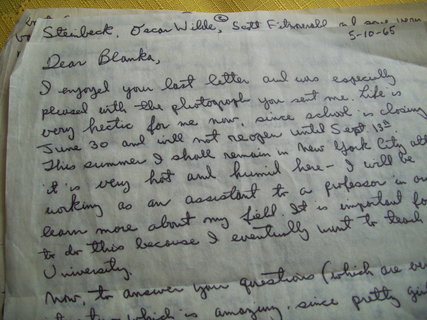 Steinbeck, Oscar Wilde, Scott Fitzgerald and some
5-10-65
Dear Blanka,
I enjoyed your last letter and was especially
pleased with the photograph you sent me. Life is
very hectic for me now, since school is closing
June 30 and will not reopen until Sept. 13th
This summer I shall remain in New York City
it is very hot and humid here - I will be
working as an assistant to a professor in
learn more about my field. It is important
to do this because I eventually want to teach
University.
Now, to answer your questions (which are
which is amazing, since pretty